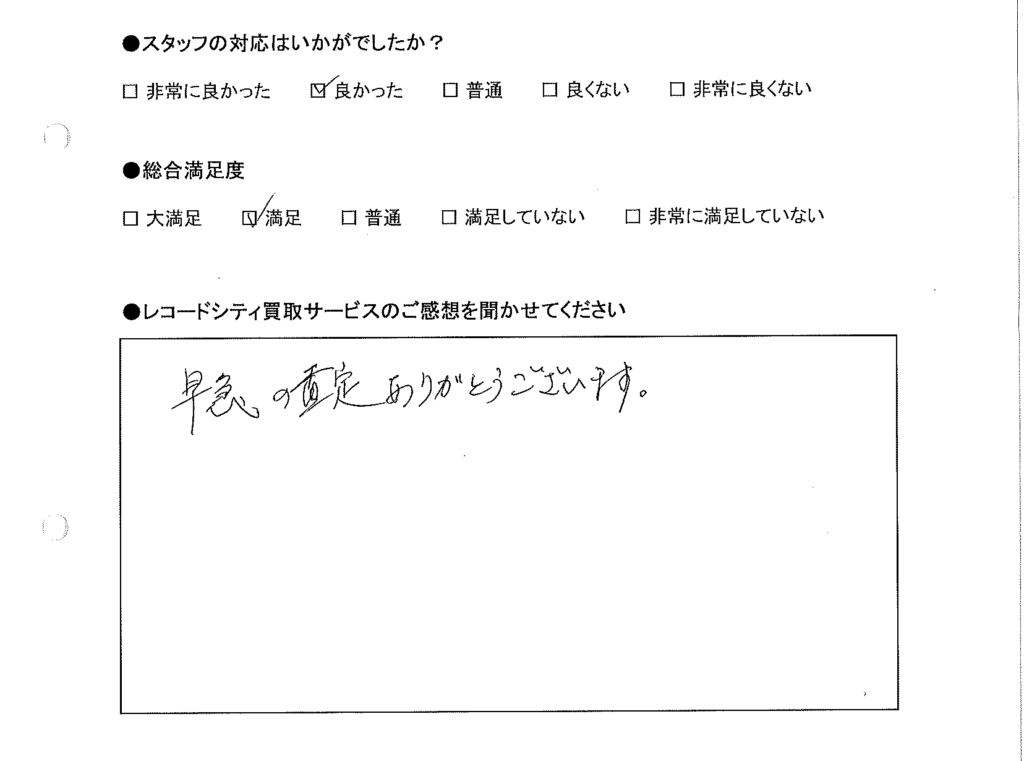 ●スタッフの対応はいかがでしたか？
□ 非常に良かった ☑ 良かった □ 普通 □ 良くない □ 非常に良くない
●総合満足度
□ 大満足 ☑ 満足 □ 普通 □ 満足していない □ 非常に満足していない
●レコードシティ買取サービスのご感想を聞かせてください
早急の査定ありがとうございます。